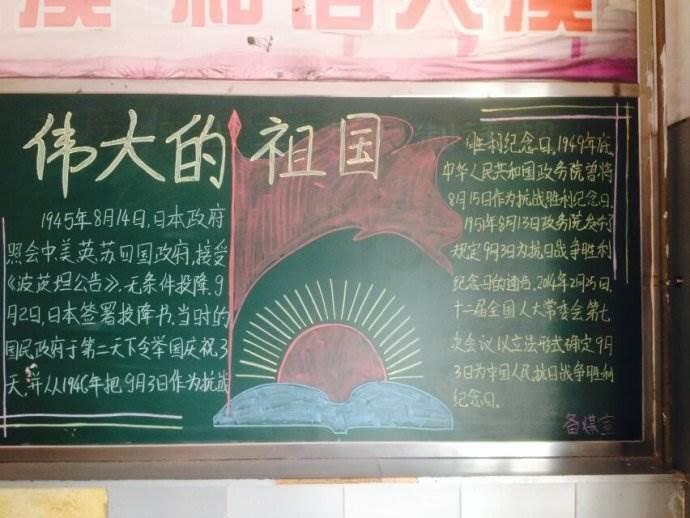 和谐大漠
伟大的祖国
1945年8月14日,日本政府
照会中美英苏四国政府,接受
《波茨坦公告》,无条件投降.9
月2日,日本签署投降书.当时的
国民政府于第二天下令举国庆祝3
天,并从1946年把9月3日作为抗战
胜利纪念日,1949年底,
中华人民共和国政务院曾将
8月15日作为抗战胜利纪念日.
1951年8月13日政务院发布了
规定9月3日为抗日战争胜利
纪念日的通告.2014年2月25日,
十二届全国人大常委会第七
次会议以立法形式确定9月
3日为中国人民抗日战争胜利
纪念日。
备煤宣